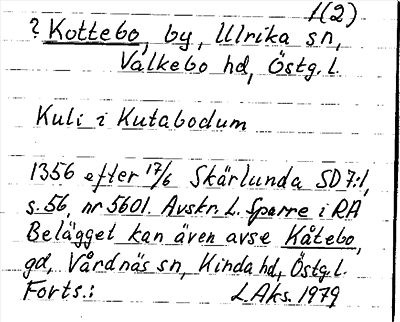 1(2)
? Kottebo, by, Ulrika sn,
Valkebo hd, Östg. l.
Kuli i Kutabodum
1356 efter 17/6 Skärlunda SD 7:1,
s. 56, nr 5601. Avskr. L. Sparre i RA
Belägget kan även avse Kåtebo,
gd, Vårdnäs sn, Kinda hd, Östg. l.
Forts.: L. Aks. 1979